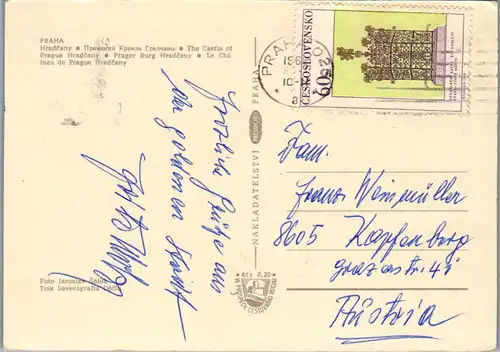 PRAHA
Hradčany • Пражский Кремль Градчаны • The Castle of
Prague Hradčany • Prager Burg Hradčany • Le Châ
teau de Prague Hradčany
Herzliche Grüße aus
der goldenen Stadt
Foto Jaroslav
Tisk Severografia Děčín
NAKLADATELSTVÍ PRAHA
Kčs 0,20
PRAHA
ČESKOSLOVENSKO
60h
Fam.
Franz Weinmüller
8605 Kapfenberg
Grazerstr. 41
Austria